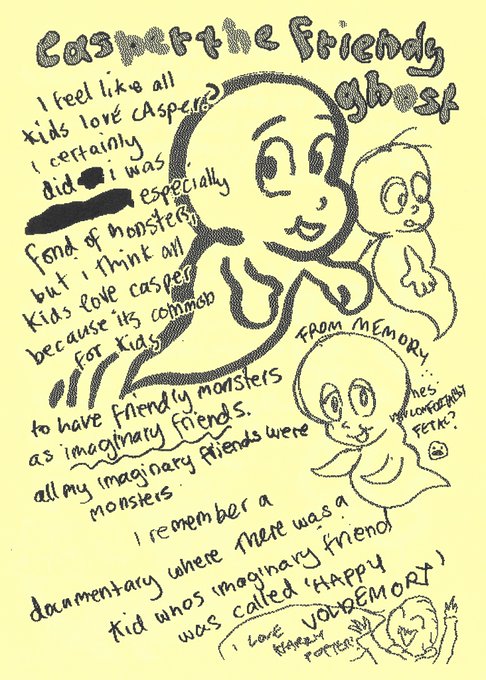 Casper the friendy
ghost
I feel like all
kids love casper?
i certainly
did i was
especially
fond of monsters,
but i think all
kids love casper
because its common
for kids
to have friendly monsters
as imaginary friends.
all my imaginary friends were
monsters
FROM MEMORY
...
hes
uncomfortably
FETAL?
I remember a
documentary where there was a
kid whos imaginary friend
was called 'HAPPY
VOLDEMORY'
I LOVE
HARRY
POTTER!